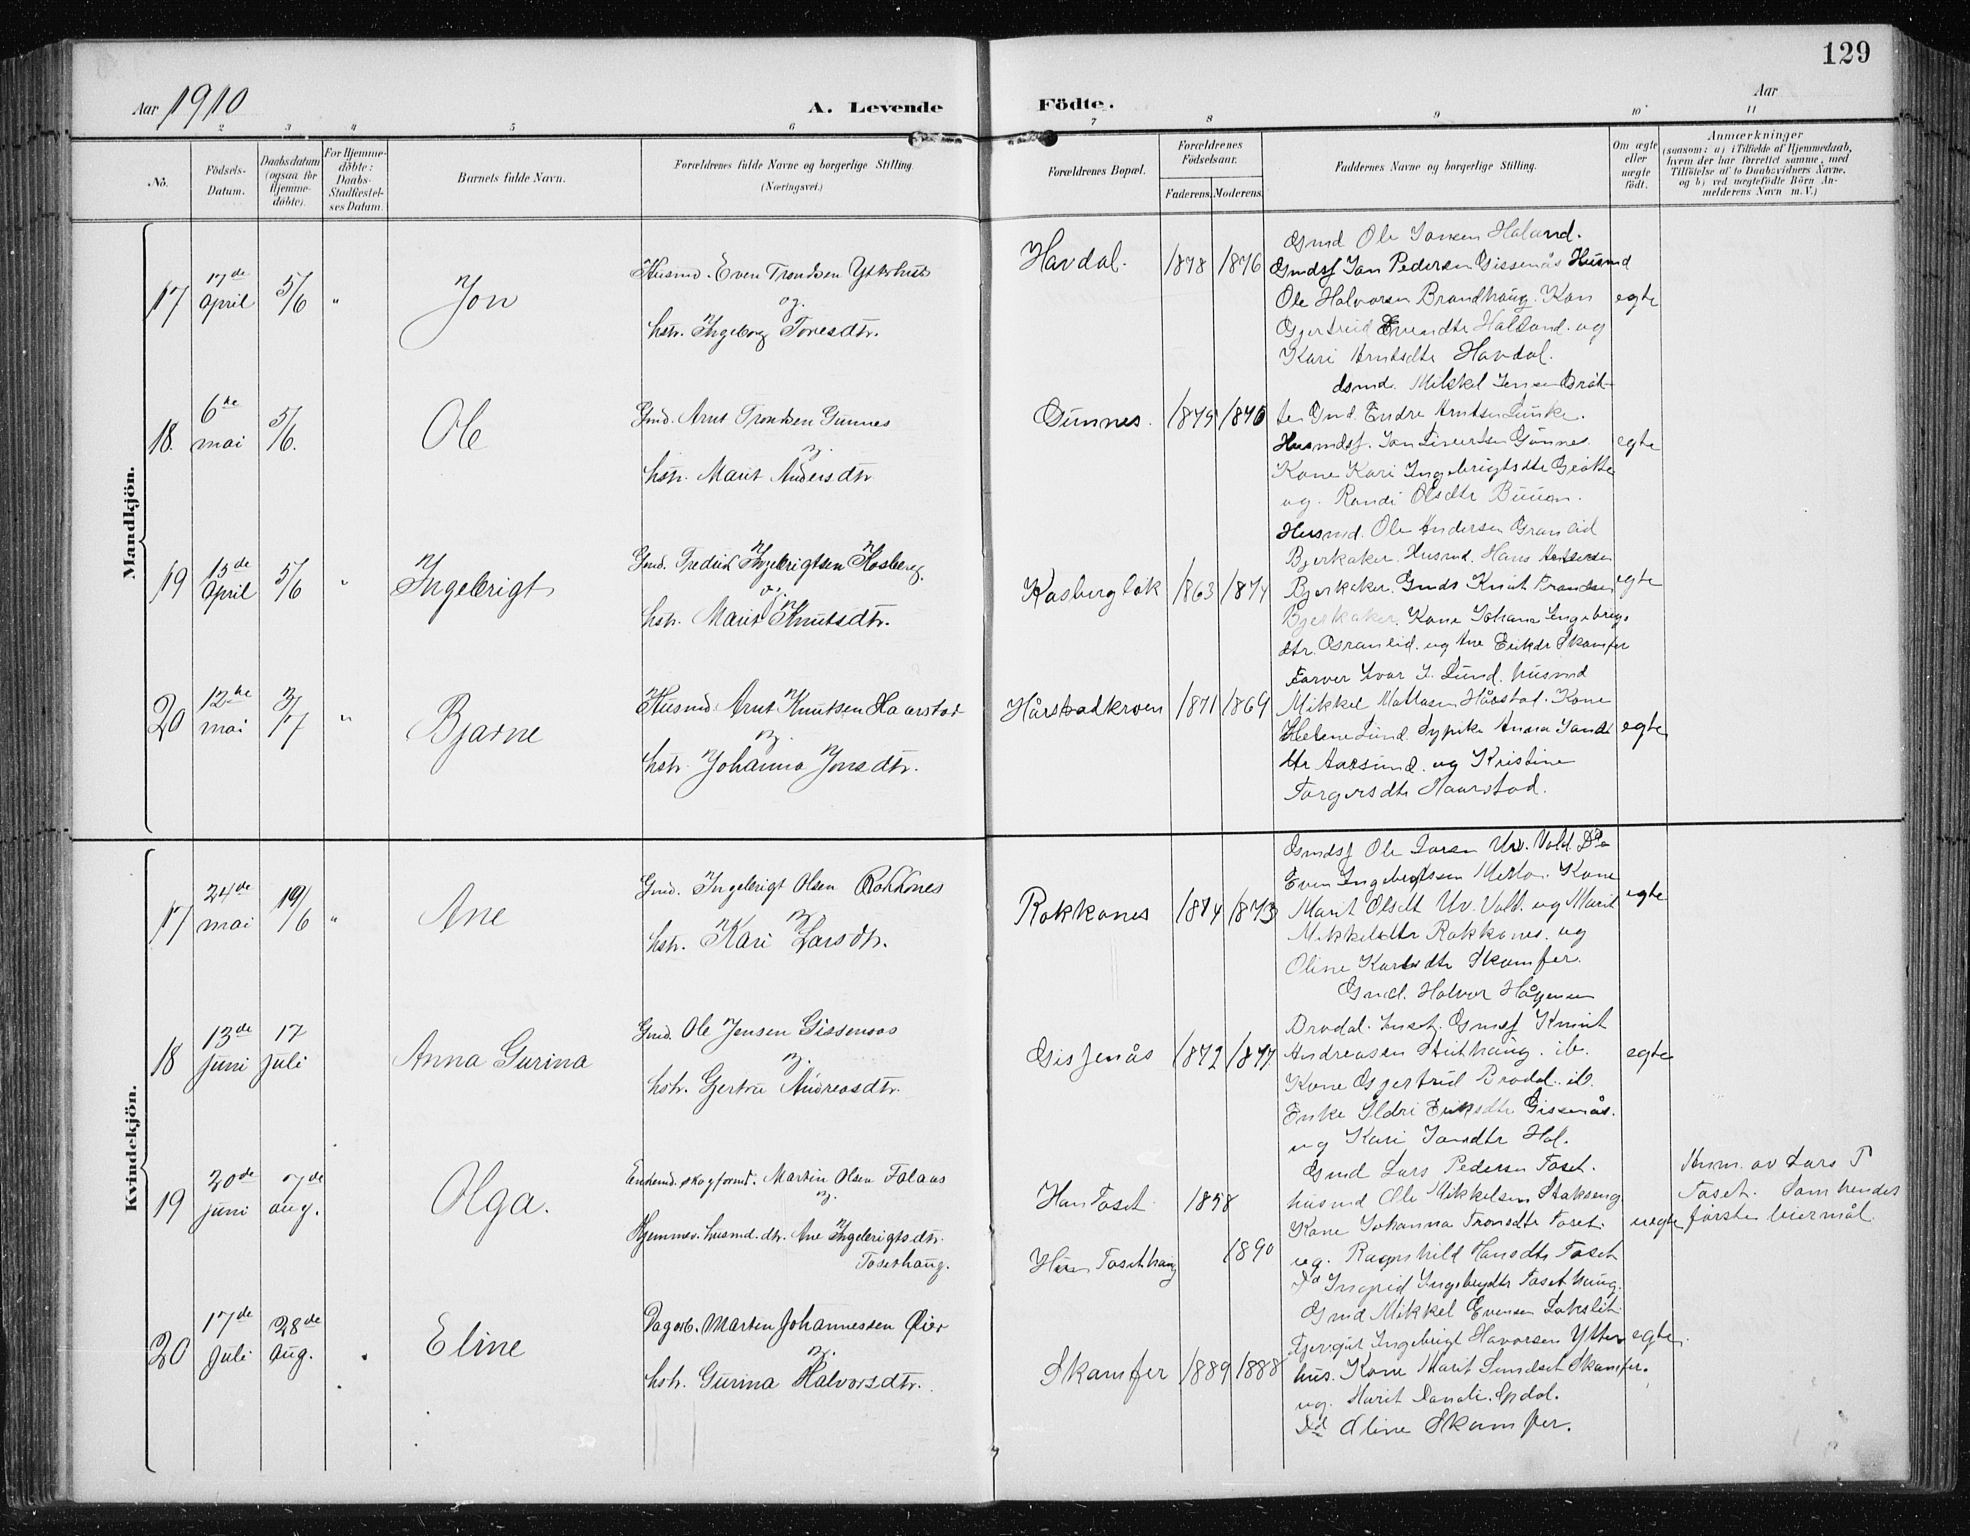 129
Aar 1910
A. Levende Födte.
Aar
2 3 4 5 6 7 8 9 10 11
No.
Födsels-Datum.
Daabsdatum (ogsaa for Hjemme-döbte).
For Hjemme-döbte: Daabs-Stadfæstel-ses Datum.
Barnets fulde Navn.
Forældrenes fulde Navne og borgerlige Stilling.
(Næringsvei.)
Forældrenes Bopæl.
Forældrenes Födselsaar.
Faderens. Moderens.
Faddernes Navne og borgerlige Stilling.
Om ægte eller uægte födt.
Anmærkninger
(saasom: a) i Tilfælde af Hjemmedaab,
hvem der har forrettet samme, med
Tilföielse af to Daabsvidners Navne,
og b) ved uægtefödte Börn An-
melderens Navn m. V.)
Mandkjön.
17 17de April 5/6 " Jon
Husmd. Even Trondsen Ytterhus
og
hstr. Ingeborg Toresdtr.
Havdal. 1878 1876
Gmd Ole Jonsen Haland.
Gmdsf Jon Pedersen Gissenås Husmd
Ole Halvorsen Brandhaug. Kon
Gjertrud Evendtr Haland. og
Kari Arntsdtr Havdal.
egte
18. 6te mai 5/6. Ole
Gmd. Arnt Trondsen Gunnes
og.
hstr. Marit Andersdtr
Gunnes. 1875 1876
Gmd. Mikkel Jensen
Gmd. Endre Arntsen
Husmdsf. Jon Sivertsen Gunnes.
Kone Kari Ingebrigtsdtr
og. Randi Olsdtr
egte
19 15de April 5/6 " Ingebrigt
Gmd. Fredrik Ingebrigtsen Kosberg.
og.
hstr. Marit Knutsdtr.
1863 1874
Husmd. Ole Andersen Granlid
Bjerkaker. Husmd. Hans Andersen
Bjerkaker. Gmds Knut Trondsen
Bjerkaker. Kone Johana Ingebrigs
dtr. Granlid. og Ane Eriksdtr Skamfer
egte
20 12te mai 3/7 " Bjarne
Husmd. Arnt Knutsen Haarstad
og.
hstr. Johanna Jonsdtr.
Hårstadkroen 1871 1869
Farver Ivar J. Lund. husmd
Mikkel Matiasen Hårstad. Kone
Helene Lund. Sypike Anna Jons
dtr Aarsund. og Kristine
Torgersdtr Haarstad.
egte
Kvindekjön.
17 24de mai 19/6 " Ane
Gmd. Ingebrigt Olsen Rokkones
og
hstr. Kari Larsdtr.
Rokkones 1874 1873
Gmdsf Ole Larsen Uv. Vold. Do
Even Ingebrigtsen Merlo. Kone
Marit Olsdt Uv. Vold. og Marit
Mikkelsdtr Rokkones. og
Oline Karlsdtr Skamfer.
egte
18 13de juni 17 juli Anna Gurina
Gmd. Ole Jensen Gissenaas
og.
hstr. Gjertru Andreasdtr.
Gissenås 1872 1877.
Gmd. Halvor Hågensen
Brodal. Inset. Gmdsf Knut
Andreasen Stuthaug. ib.
Kone Gjertrud Brodal. ib.
Enke Ildri Eriksdtr Gissenås.
og Kari Jonsdtr Hol.
egte
19 20de juni 7de aug. Olga.
Enkemd. skogformd. Martin Olsen Folaas
og.
Hjemmev. husmd. dtr. Ane Ingebrigtsdtr.
Tosethaug.
Han Toset. 1858
Hun Tosethaug 1890
Gmd Lars Pedersen Toset.
husmd Ole Mikkelsen Stakseng.
Kone Johanna Tronsdtr Toset.
og. Ragnhild Hansdtr Toset
Do Ingrid Ingebrigtsdtr Tosethaug.
uegte
Anm. av Lars P
Toset. Som hendes
første leiermål.
20 17de Juli 28de Aug. Eline
Dagarb. Marten Johannessen Øier
og.
hstr. Gurina Halvorsdtr.
Skamfer 1889 1888
Gmd Mikkel Evensen
Ingebrigt Havorsen Ytter
hus. Kone Marit Skamfer.
og. Marit
Do Oline Skamfer.
egte.